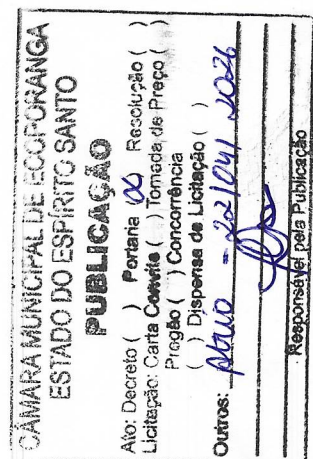 CÂMARA MUNICIPAL DE ECOPORANGA
ESTADO DO ESPÍRITO SANTO
PUBLICAÇÃO
Ato: Decreto ( ) Portaria (X) Resolução ( )
Licitação: Carta Convite ( ) Tomada de Preço ( )
Pregão ( ) Concorrência
( ) Dispensa de Licitação ( )
Outros: - 22/04/2026
Responsável pela Publicação